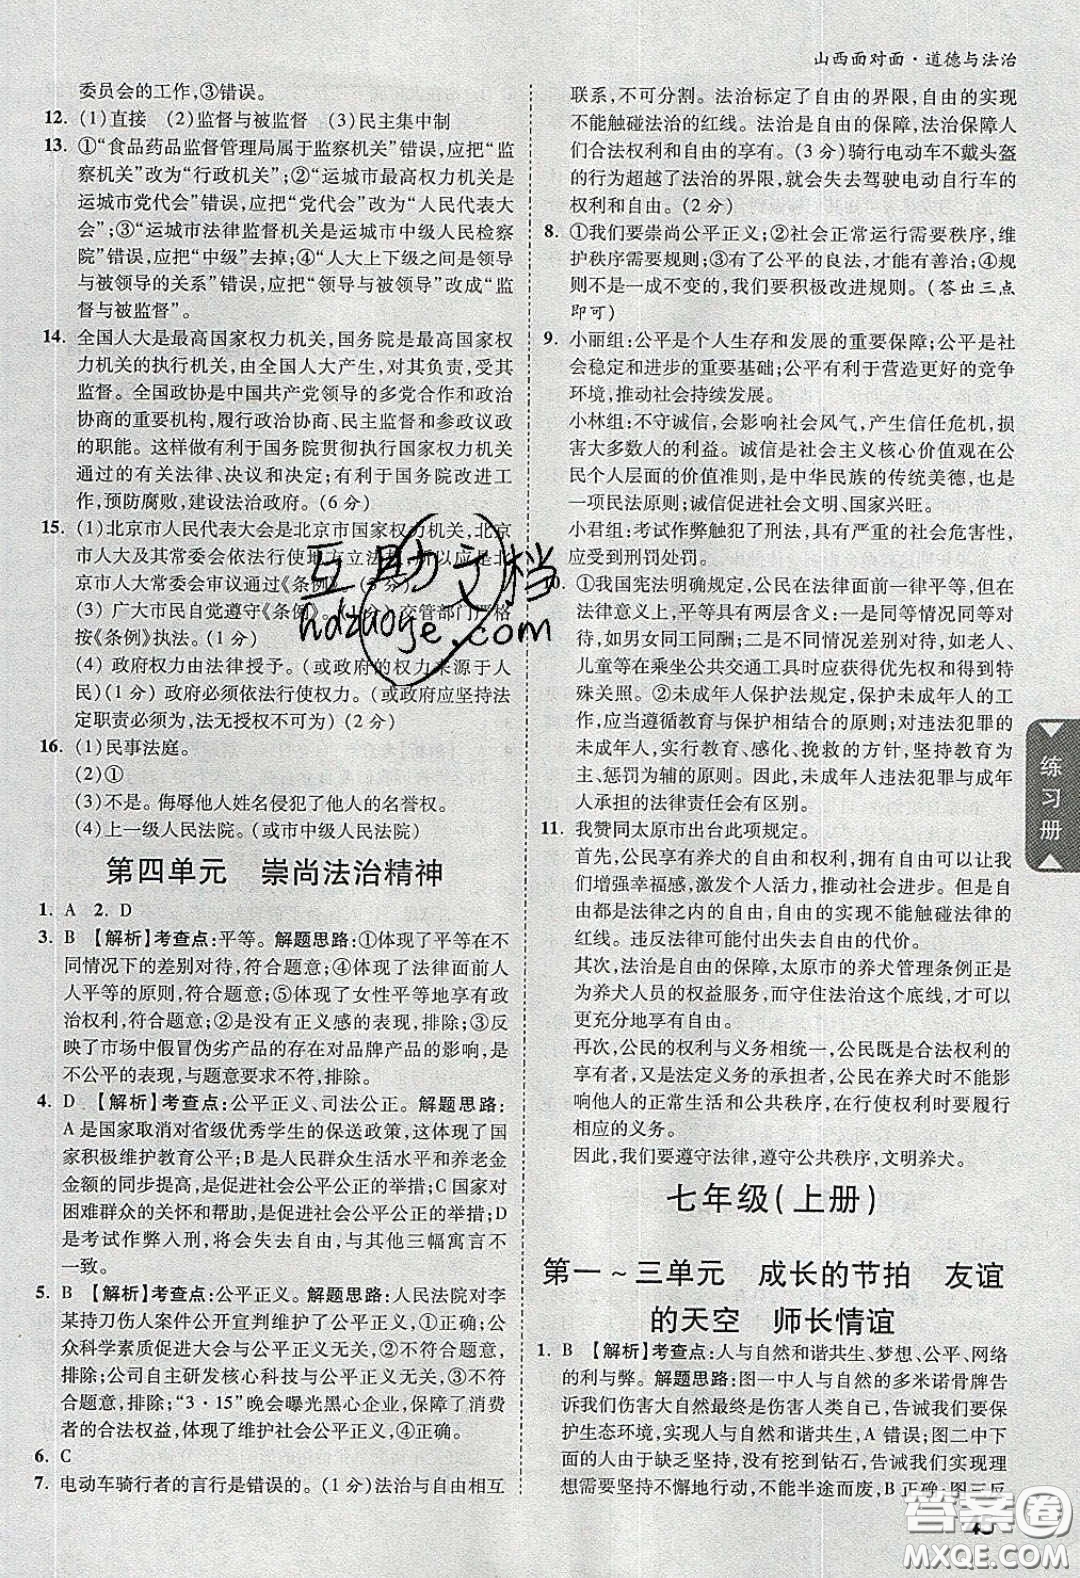 山西面对面·道德与法治
委员会的工作,③错误。
12. (1)直接 (2)监督与被监督 (3)民主集中制
13. ①“食品药品监督管理局属于监察机关”错误,应把“监
察机关”改为“行政机关”;②“运城市最高权力机关是
运城市党代会”错误,应把“党代会”改为“人民代表大
会”;③“运城市法律监督机关是运城市中级人民检察
院”错误,应把“中级”去掉;④“人大上下级之间是领导
与被领导的关系”错误,应把“领导与被领导”改成“监
督与被监督”。
14. 全国人大是最高国家权力机关,国务院是最高国家权
力机关的执行机关,由全国人大产生,对其负责,受其
监督。全国政协是中国共产党领导的多党合作和政治
协商的重要机构,履行政治协商、民主监督和参政议政
的职能。这样做有利于国务院贯彻执行国家权力机关
通过的有关法律、决议和决定;有利于国务院改进工
作,预防腐败,建设法治政府。(6分)
15. (1)北京市人民代表大会是北京市国家权力机关,北京
市人大及其常委会依法行使地方立法权,所以应是北
京市人大常委会审议通过《条例》。
(3)广大市民自觉遵守《条例》。(1分)交管部门严格
按《条例》执法。(1分)
(4)政府权力由法律授予。(或政府的权力来源于人
民)(1分)政府必须依法行使权力。(或政府应坚持法
定职责必须为,法无授权不可为)(2分)
16. (1)民事法庭。
(2)①
(3)不是。侮辱他人姓名侵犯了他人的名誉权。
(4)上一级人民法院。(或市中级人民法院)
第四单元 崇尚法治精神
1. A 2. D
3. B 【解析】考查点:平等。解题思路:①体现了平等在
不同情况下的差别对待,符合题意;④体现了法律面前人
人平等的原则,符合题意;⑤体现了女性平等地享有政
治权利,符合题意;②是没有正义感的表现,排除;③反
映了市场中假冒伪劣产品的存在对品牌产品的影响,是
不公平的表现,与题意要求不符,排除。
4. D 【解析】考查点:公平正义、司法公正。解题思路:
A是国家取消对省级优秀学生的保送政策,体现了国
家积极维护教育公平;B是人民群众生活水平和养老金
金额的同步提高,是促进社会公平公正的举措;C国家对
困难群众的关心和帮助,是促进社会公平公正的举措;D
是考试作弊入刑,将会失去自由,与三个寓言寓意不
一致。
5. B 【解析】考查点:公平正义。解题思路:人民法院对李
某持刀伤人案件公开宣判维护了公平正义,①正确;公
众科学素质提促进大会与公平正义无关,②不符合题意,
排除;公司自主研发核心科技与公平正义无关,③不符
合题意,排除;“3·15”晚会曝光黑心企业,保障了消费
者的合法权益,体现了维护社会公平正义,④正确。
6. C
7. 电动车骑行者的言行是错误的。(1分)法治与自由相互
联系,不可分割。法治标定了自由的界限,自由的实现
不能触碰法治的红线。法治是自由的保障,法治保障人
们合法权利和自由的享有。(3分)骑行电动车不戴头盔
的行为超越了法治的界限,就会失去驾驶电动自行车的
权利和自由。(2分)
8. ①我们要崇尚公平正义;②社会正常运行需要秩序,维
护秩序需要规则;③有了公平的良法,才能有善治;④
规则不是一成不变的,我们要积极改进规则。(答出三点
即可)
9. 小丽组:公平是个人生存和发展的重要保障;公平是社
会稳定和进步的重要基础;公平有利于营造更好的竞争
环境,推动社会持续发展。
小林组:不守诚信,会影响社会风气,产生信任危机,损
害大多数人的利益。诚信是社会主义核心价值观在公
民个人层面的价值准则,是中华民族的传统美德,也是
一项民法原则;诚信促进社会文明、国家兴旺。
小君组:考试作弊触犯了刑法,具有严重的社会危害性,
应受到刑罚处罚。
10. ①我国宪法明确规定,公民在法律面前一律平等。在
法律意义上,平等具有两层含义:一是同等情况同等对
待,如男女同工同酬;二是不同情况差别对待,如老人、
儿童等在乘坐公共交通工具时应获得优先权和得到特
殊关照。②未成年人保护法规定,保护未成年人的工
作,应当遵循教育与保护相结合的原则;对违法犯罪的
未成年人,实行教育、感化、挽救的方针,坚持教育为
主、惩罚为辅的原则。因此,未成年人违法犯罪与成年
人承担的法律责任会有区别。
11. 我赞同太原市出台此项规定。
首先,公民享有养犬的自由和权利,法治让自由让我们
们增强幸福感,激发个人活力,推动社会进步。但是,
自由都是法律之内的自由,自由的实现不能触碰法律的
红线。违反法律可能付出失去自由的代价。
其次,法治是自由的保障,太原市的养犬管理条例正是
为养犬人员的权益服务,而守住法治这个底线,人们才可以
更充分地享有自由。
再次,公民的权利与义务相统一,公民既是合法权利的
享有者,又是法定义务的承担者,公民在养犬时不能影
响他人的正常生活和公共秩序,在行使权利时要履行
相应的义务。
因此,我们要遵守法律,遵守公共秩序,文明养犬。
七年级(上册)
第一~三单元 成长的节拍 友谊
的天空 师长情谊
1. B 【解析】考查点:人与自然和谐共生、梦想、公平、网络
的利与弊。解题思路:图一中人与自然的多米诺骨牌告
诉我们伤害大自然最终是伤害人类自己,告诫我们应该
保护生态环境,实现人与自然和谐共生,A错误;图二中下
面的人由于缺乏坚持,没有挖到钻石,告诫我们实现人生
梦想需要坚持不懈地付诸行动,不能半途而废,B正确;图三反
练习册
互助文档
hdzuoye.com
答案圈
MXQE.COM